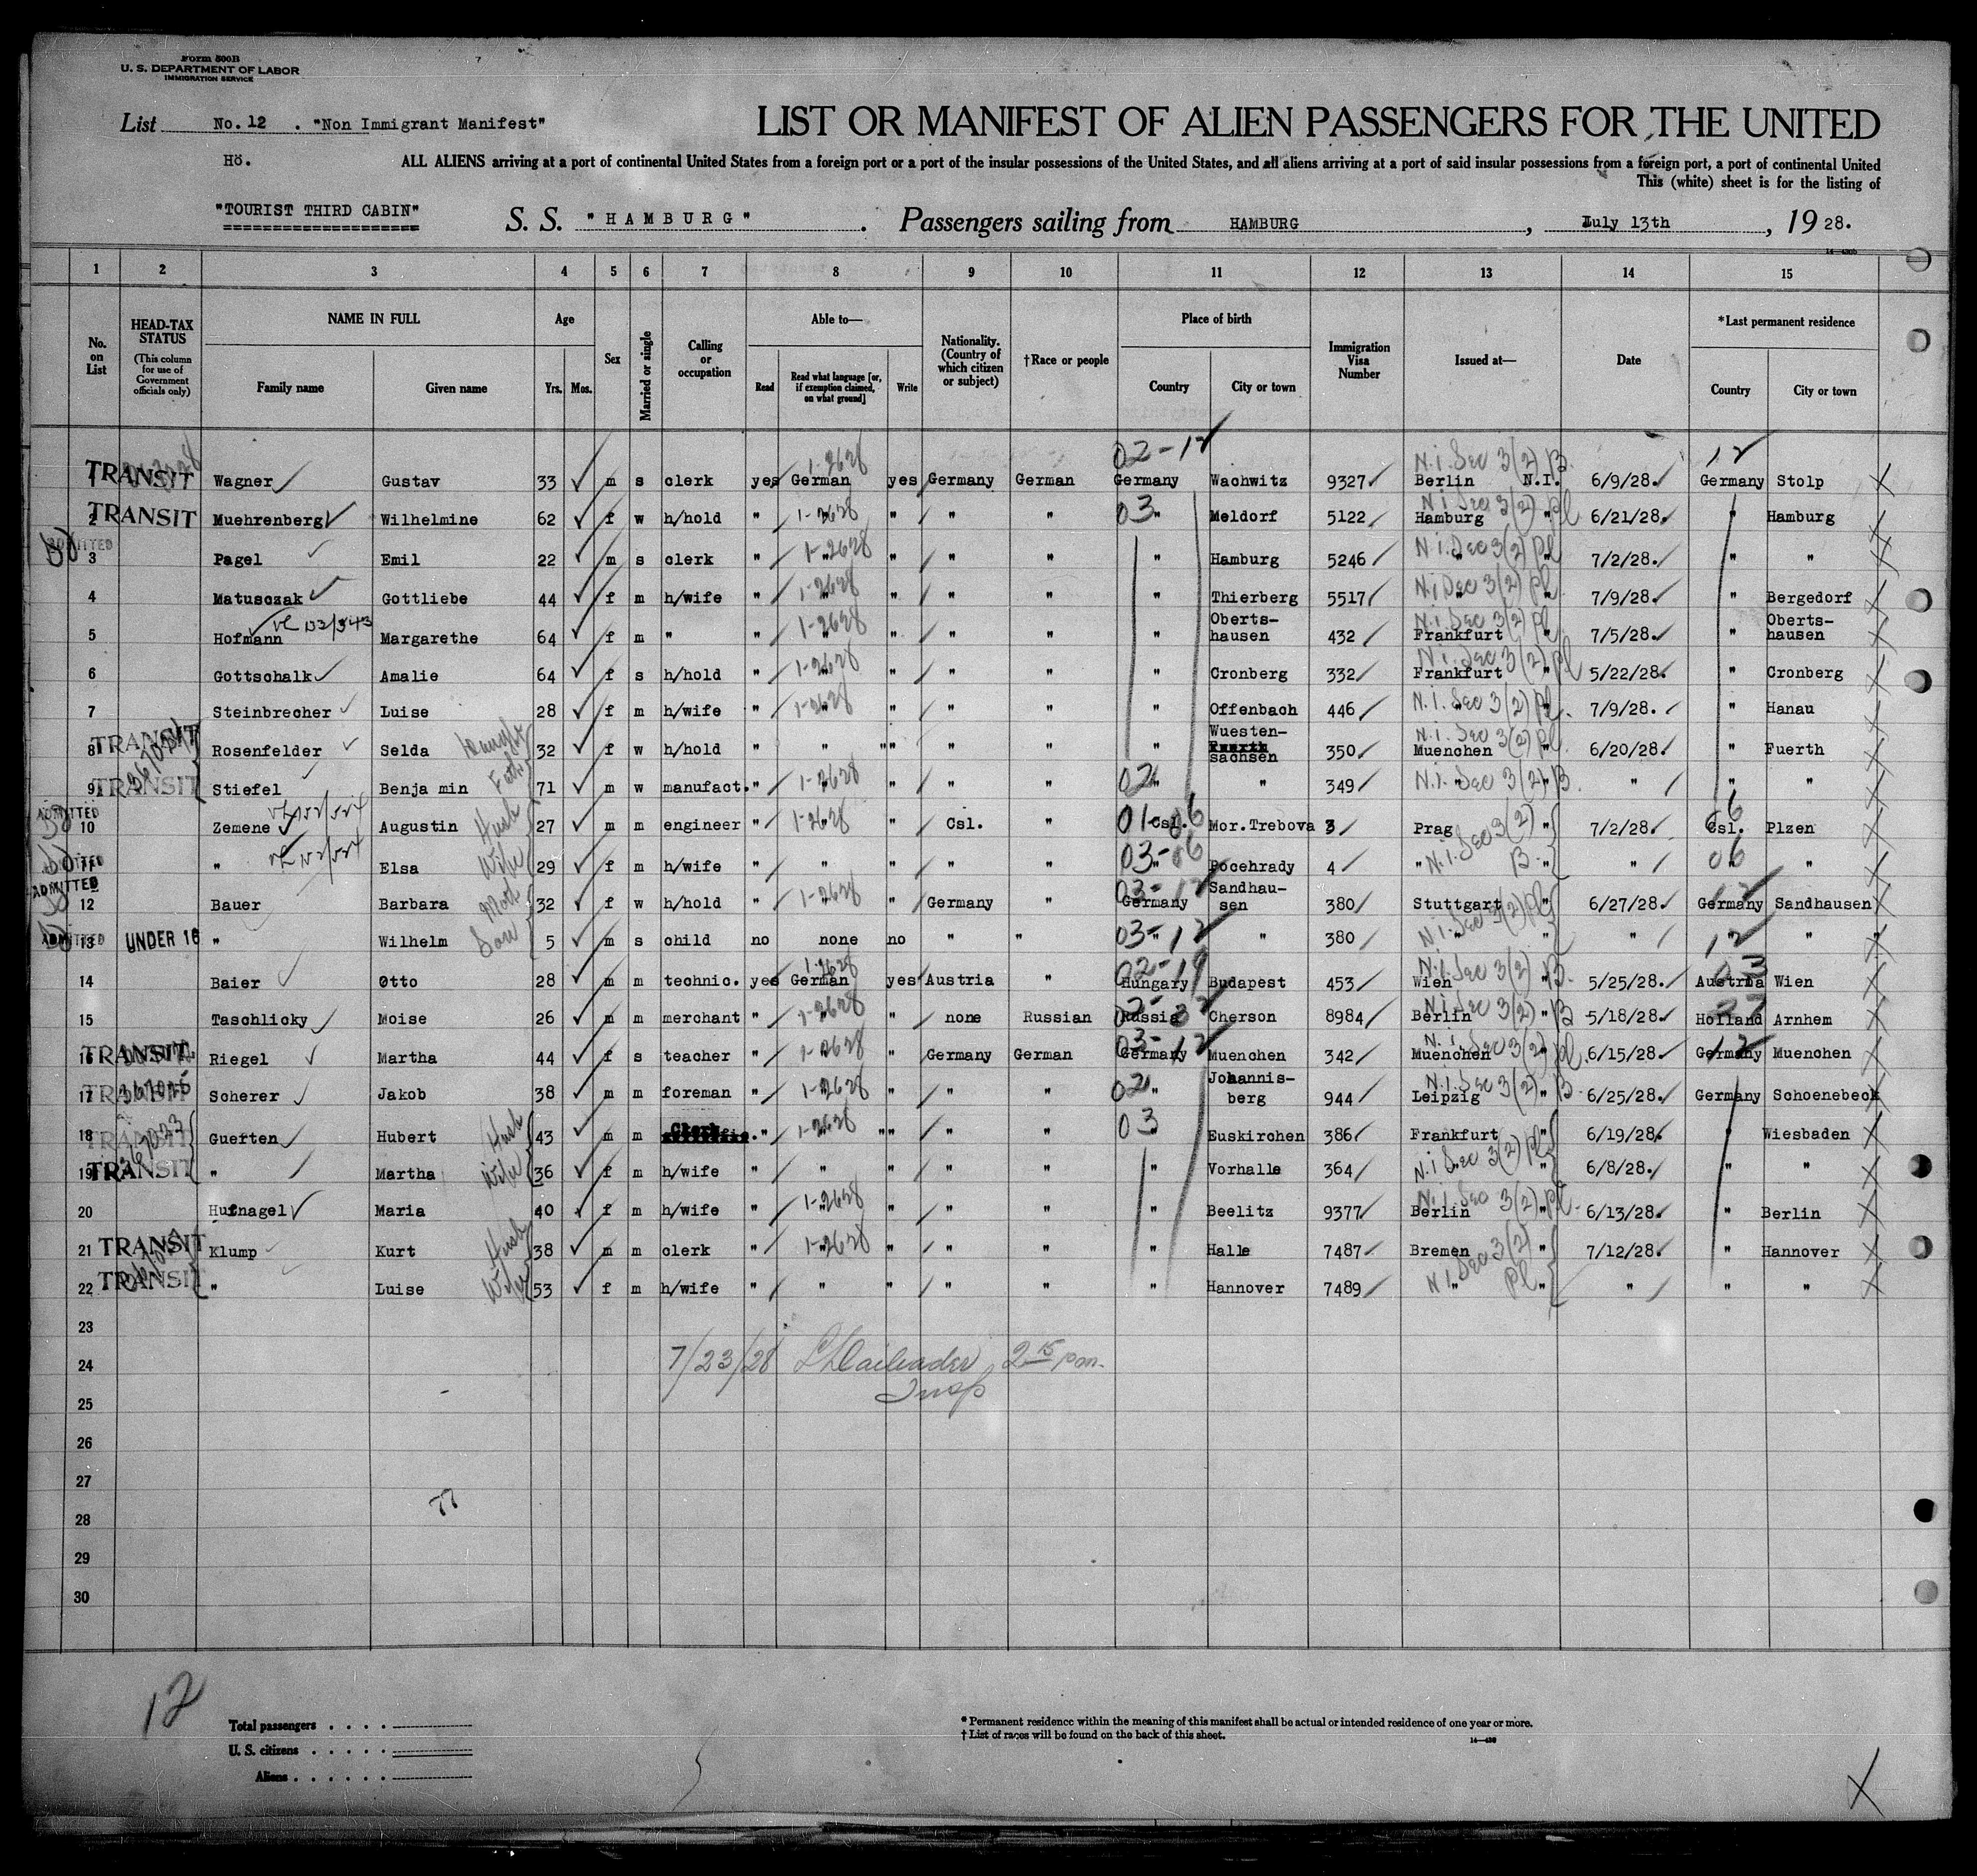 Form 500B
U. S. DEPARTMENT OF LABOR
IMMIGRATION SERVICE
List No. 12 . "Non Immigrant Manifest"
LIST OR MANIFEST OF ALIEN PASSENGERS FOR THE UNITED
Hö.
ALL ALIENS arriving at a port of continental United States from a foreign port or a port of the insular possessions of the United States, and all aliens arriving at a port of said insular possessions from a foreign port, a port of continental United
This (white) sheet is for the listing of
"TOURIST THIRD CABIN"
S. S. "HAMBURG" . Passengers sailing from HAMBURG , July 13th , 19 28.
1 2 3 4 5 6 7 8 9 10 11 12 13 14 15
No. on List
HEAD-TAX STATUS (This column for use of Government officials only)
NAME IN FULL Family name Given name
Age Yrs. Mos.
Sex
Married or single
Calling or occupation
Able to— Read Read what language [or, if exemption claimed, on what ground] Write
Nationality. (Country of which citizen or subject)
†Race or people
Place of birth Country City or town
Immigration Visa Number
Issued at—
Date
*Last permanent residence Country City or town
1 TRANSIT Wagner Gustav 33 m s clerk yes German 1-2628 yes Germany German 02-12 Germany Wachwitz 9327 N.I. Sec 3(2) B. Berlin N.I. 6/9/28. 12 Germany Stolp
2 TRANSIT Muehrenberg Wilhelmine 62 f w h/hold " 1-2628 " " " " 03 " Meldorf 5122 N.I. Sec 3(2) Pl Hamburg " 6/21/28. " Hamburg
3 ADMITTED Pagel Emil 22 m s clerk " 1-2628 " " " " " Hamburg 5246 N.I. Sec 3(2) Pl " " 7/2/28. " "
4 Matusczak Gottliebe 44 f m h/wife " 1-2628 " " " " " Thierberg 5517 N.I. Sec 3(2) Pl " " 7/9/28. " Bergedorf
5 Hofmann vl 132/343 Margarethe 64 f m " " 1-2628 " " " " " Oberts-hausen 432 N.I. Sec 3(2) Pl Frankfurt " 7/5/28. " Oberts-hausen
6 Gottschalk Amalie 64 f s h/hold " 1-2628 " " " " " Cronberg 332 N.I. Sec 3(2) Pl Frankfurt " 5/22/28. " Cronberg
7 Steinbrecher Luise 28 f m h/wife " 1-2628 " " " " " Offenbach 446 N.I. Sec 3(2) Pl. " " 7/9/28. " Hanau
8 TRANSIT Rosenfelder Selda 32 f w h/hold " " " " " " Wuesten-sachsen 350 N.I. Sec 3(2) Pl Muenchen " 6/20/28. " Fuerth
9 TRANSIT Stiefel Benja min Fath 71 m w manufact. " 1-2628 " " " " 02 " " 349 N.I. Sec 3(2) B. " " " "
10 ADMITTED Zemene Augustin Husb 27 m m engineer " 1-2628 " Csl. " 01-06 Csl. Mor.Trebova 3 Prag " 7/2/28. 06 Csl. Plzen
11 ADMITTED " Elsa Wife 29 f m h/wife " " " " " 03-06 " Pocehrady 4 " N.I. Sec 3(2) B. " " 06 "
12 ADMITTED Bauer Barbara Moth 32 f w h/hold " 1-2628 " Germany " 03-12 Germany Sandhau-sen 380 Stuttgart " 6/27/28. 12 Germany Sandhausen
13 ADMITTED UNDER 16 " Wilhelm Son 5 m s child no none no " " 03-12 " " 380 N.I. Sec 3(2) Pl " " " 12 " "
14 Baier Otto 28 m m technic. yes German 1-2628 yes Austria " 02-19 Hungary Budapest 453 N.I. Sec 3(2) B. Wien " 5/25/28. 03 Austria Wien
15 Taschlicky Moise 26 m m merchant " 1-2628 " none Russian Russia Cherson 8984 N.I. Sec 3(2) B Berlin " 5/18/28. 27 Holland Arnhem
16 TRANSIT Riegel Martha 44 f s teacher " 1-2628 " Germany German 03-12 Germany Muenchen 342 N.I. Sec 3(2) Pl. Muenchen " 6/15/28. 12 Germany Muenchen
17 TRANSIT Scherer Jakob 38 m m foreman " 1-2628 " " " 02 " Johannis-berg 944 N.I. Sec 3(2) B. Leipzig " 6/25/28. Germany Schoenebeck
18 TRANSIT Guerten Hubert Husb 43 m m Clerk " 1-2628 " " " " 03 " Euskirchen 386 Frankfurt " 6/19/28. " Wiesbaden
19 TRANSIT " Martha Wife 36 f m h/wife " " " " " " Vorhalle 364 N.I. Sec 3(2) Pl " " 6/8/28. " "
20 Hufnagel Maria 40 f m h/wife " 1-2628 " " " " " Beelitz 9377 N.I. Sec 3(2) Pl. Berlin " 6/13/28. " Berlin
21 TRANSIT Klump Kurt Husb 38 m m clerk " 1-2628 " " " " " Halle 7487 Bremen " 7/12/28. " Hannover
22 TRANSIT " Luise Wife 53 f m h/wife " " " " " " Hannover 7489 N.I. Sec 3(2) Pl " " " " "
23
24 7/23/28 2 15 pm.
25 Insp
26
27
28 77
29
30
12
Total passengers . . . .
U. S. citizens . . . . .
Aliens . . . . . .
* Permanent residence within the meaning of this manifest shall be actual or intended residence of one year or more.
† List of races will be found on the back of this sheet.
14—430
X